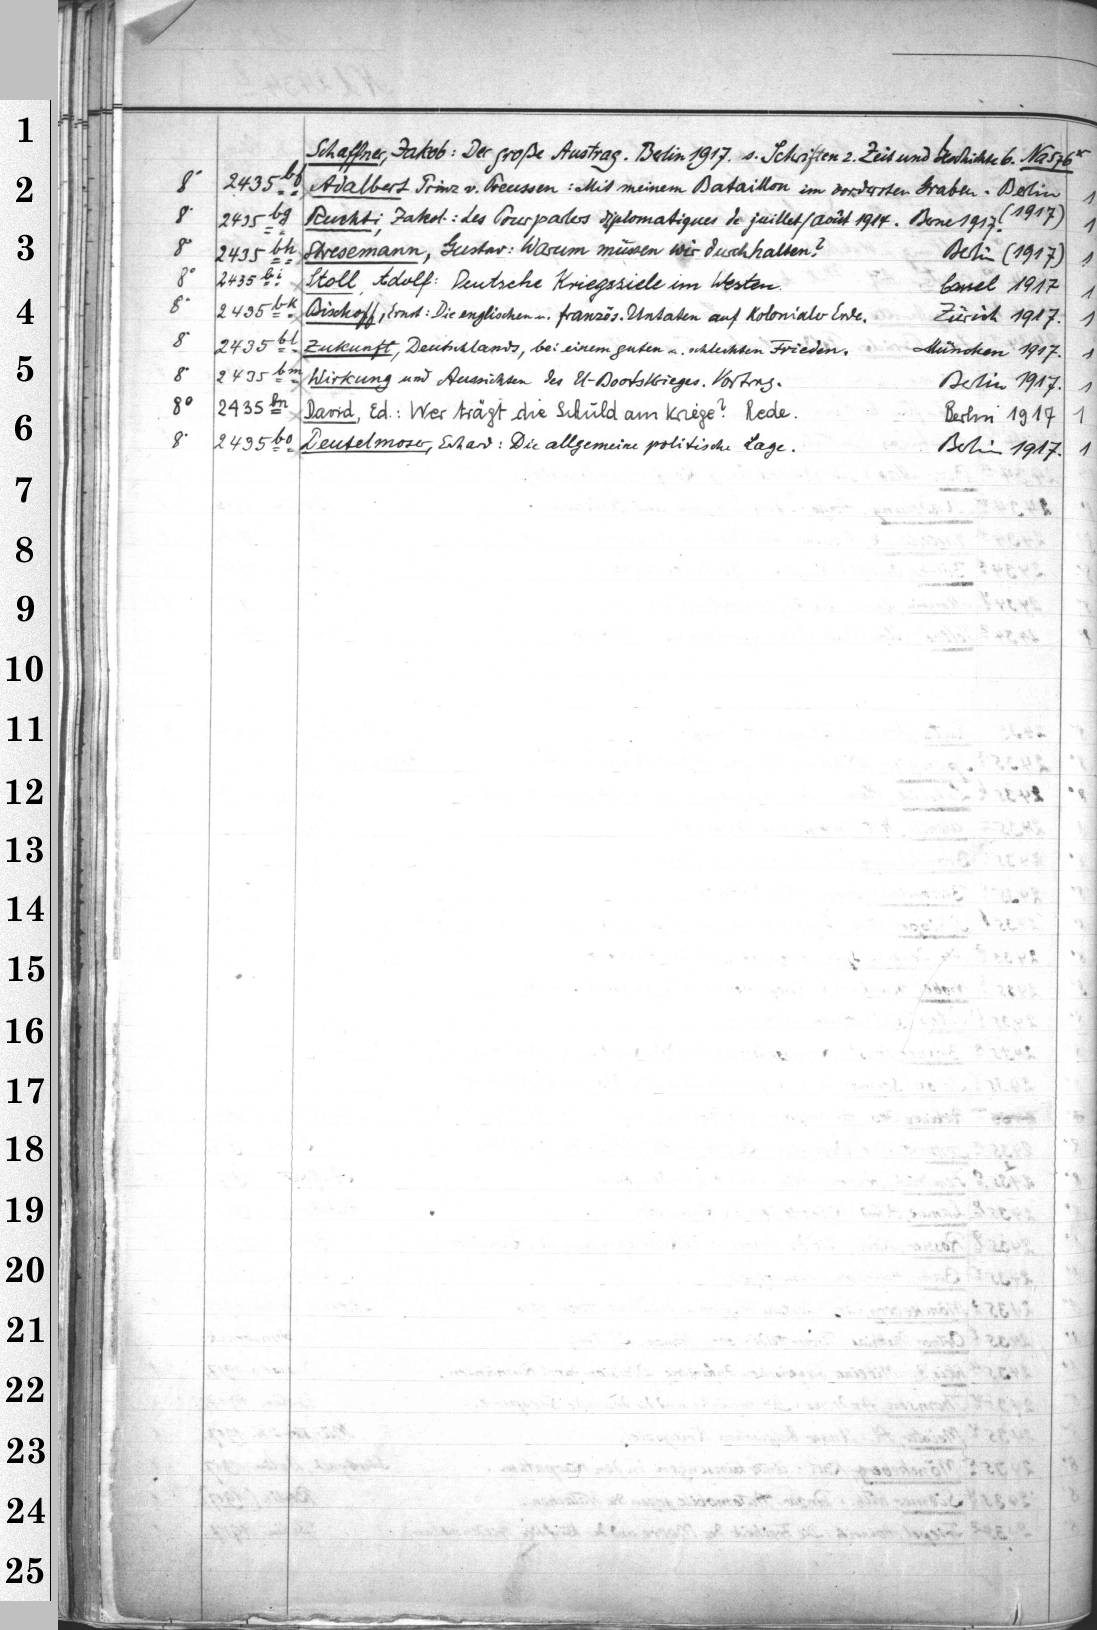 1
Schaffner, Jakob: Der große Austrag. Berlin 1917. s. Schriften z. Zeit und Geschichte 6.
2
8° 2435 bf Adalbert Prinz v. Preussen: Mit meinem Bataillon im vordersten Graben. Berlin (1917) 1
8° 2435 bg Ruchti, Jakob: Les Pourparlers diplomatiques de juillet/août 1914. Berne 1917. 1
3
8° 2435 bh Stresemann, Gustav: Warum müssen wir durchhalten? Berlin (1917) 1
8° 2435 bi Stoll, Adolf: Deutsche Kriegsziele im Westen. Cassel 1917 1
4
8° 2435 bk Bischoff, Ernst: Die englischen u. französ. Untaten auf Kolonialer Erde. Zürich 1917. 1
8° 2435 bl Zukunft, Deutschlands, bei einem guten u. schlechten Frieden. München 1917. 1
5
8° 2435 bm Wirkung und Aussichten des U-Bootskrieges. Vortrag. Berlin 1917. 1
8° 2435 bn David, Ed.: Wer trägt die Schuld am Kriege? Rede. Berlin 1917 1
6
8° 2435 bo Deutelmoser, Erhard: Die allgemeine politische Lage. Berlin 1917. 1
7
8
9
10
11
12
13
14
15
16
17
18
19
20
21
22
23
24
25